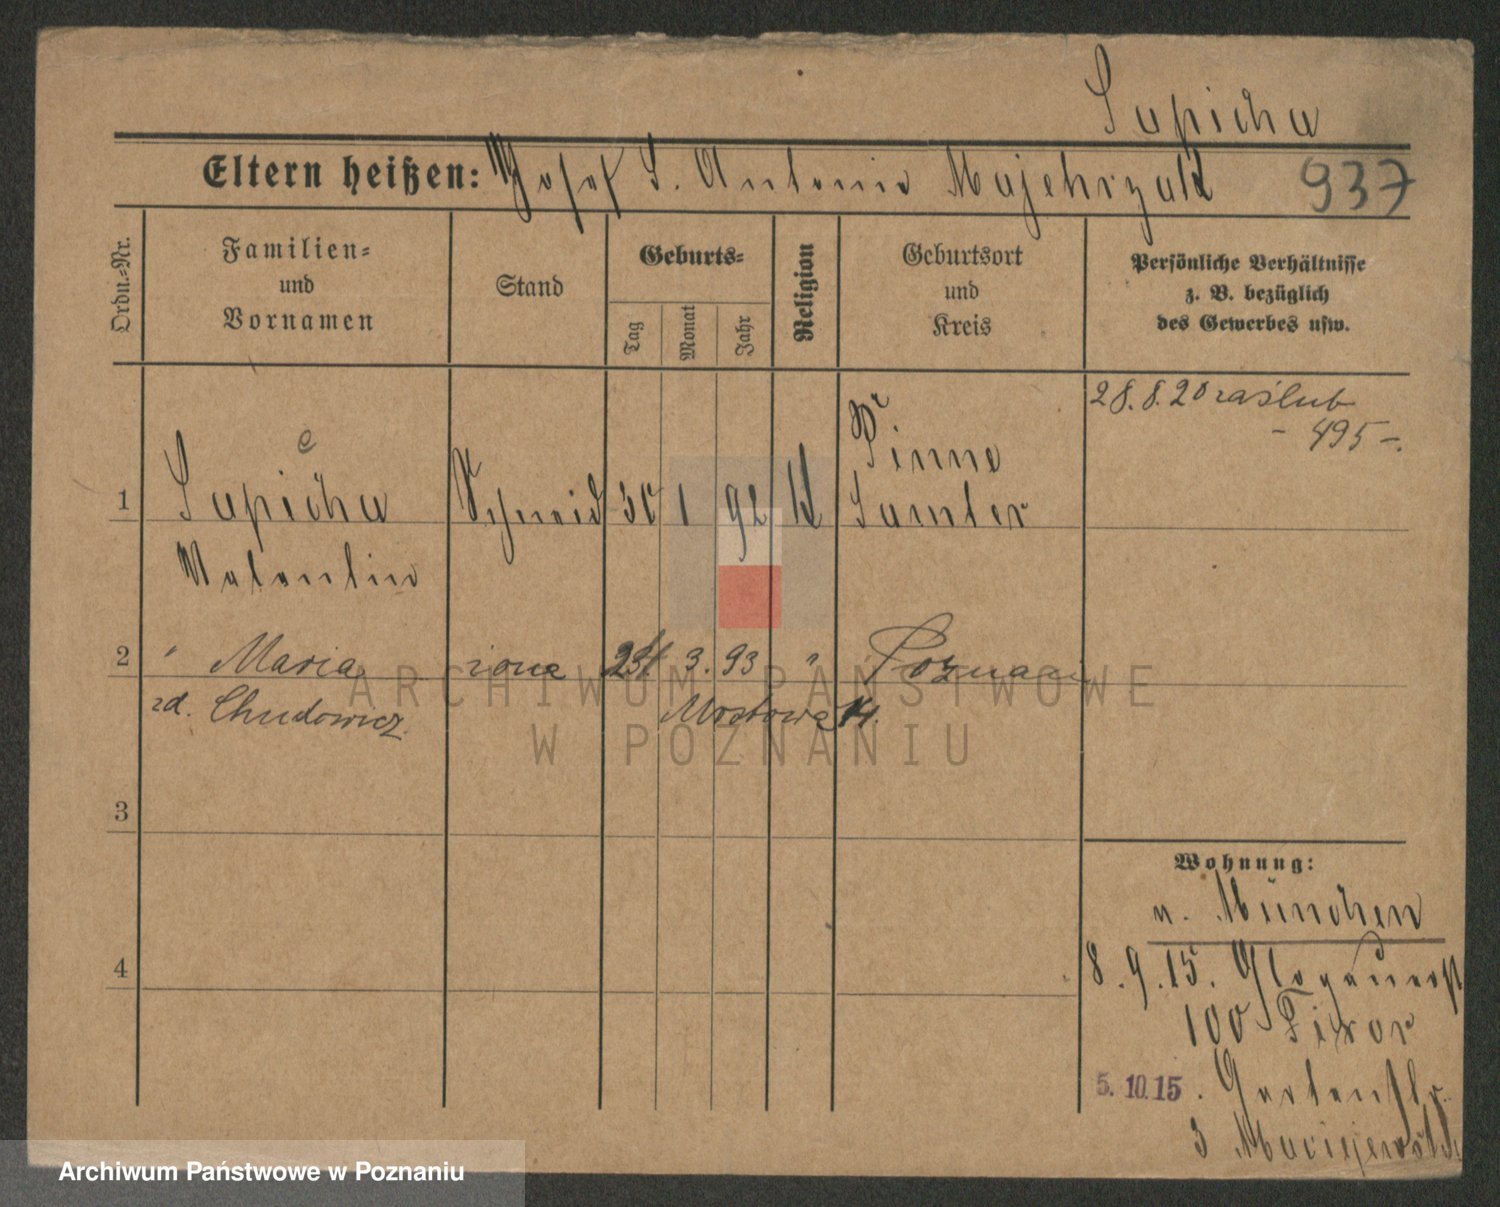 Supicha
Eltern heißen: Josef S. Antonie Majchrzak 937
Ordn.-Nr.
Familien-
und
Vornamen
Stand
Geburts-
Tag
Monat
Jahr
Religion
Geburtsort
und
Kreis
Persönliche Verhältnisse
z. B. bezüglich
des Gewerbes usw.
28.8.20 zaślub
- 495 -.
e
1 Supicha Schneid 30 1 92 K Pinne
Samter
Valentin
2 " Maria żona 23 3. 93 " Poznań
zd. Chudowicz Mostowa 14.
3
4
Wohnung:
n. München
8.9.15. Glogauerst
100
5.10.15. Gartenstr.
3 Maciejewski
ARCHIWUM PAŃSTWOWE
W POZNANIU
Archiwum Państwowe w Poznaniu